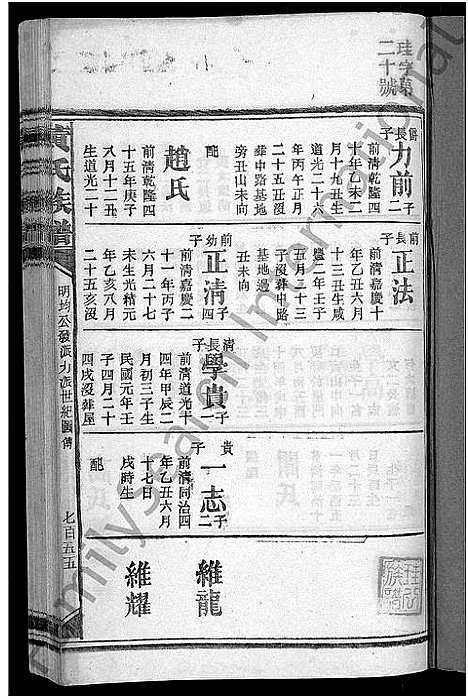 珪字第
二十號
爵長子
力前
二子
前清乾隆四
十年乙未二
月十九丑生
道光二十六
年丙午正月
二十五丑沒
葬中路基地
旁丑山未向
配
趙氏
前清乾隆四
十五年庚子
八月十二丑
生道光二十
前長子
正法
前清嘉慶十
年乙丑六月
十三丑生咸
豐二年壬子
五月二十三
子沒葬中路
基地邊
丑未向
前幼子
正清
四子
前清嘉慶二
十一年丙子
六月二十七
未生光緒元
年乙亥八月
二十五亥沒
清長子
學貴
一子
前清道光十
四年甲辰二
月初三子生
民國元年壬
子四月二十
四戌沒葬屋
貴子
一志
二子
前清同治四
年乙丑六月
十七日
戌時生
配
維龍
維耀
黃氏族譜
明均公發派力派世紀圖傳
七百五五
FamilySearch International